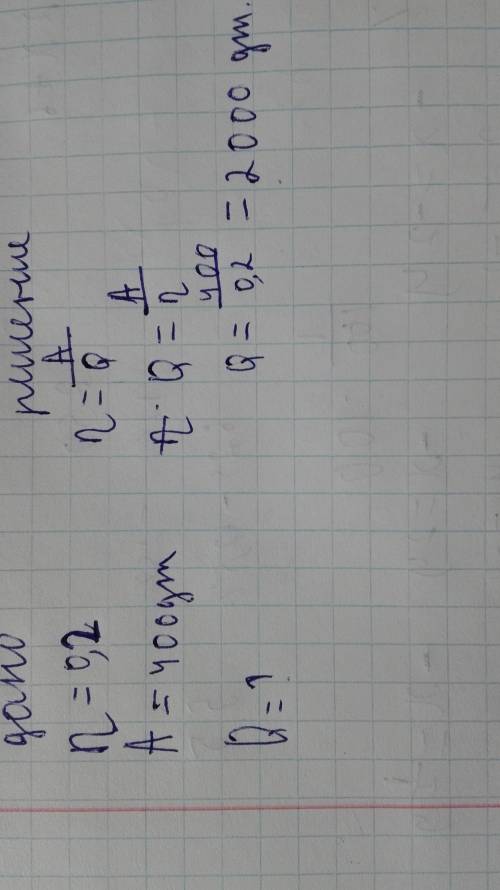 дано
η = 0,2
A = 400 дж
Q = ?
решение
η = A/Q
Q = A/η
Q = 400/0,2 = 2000 дж.